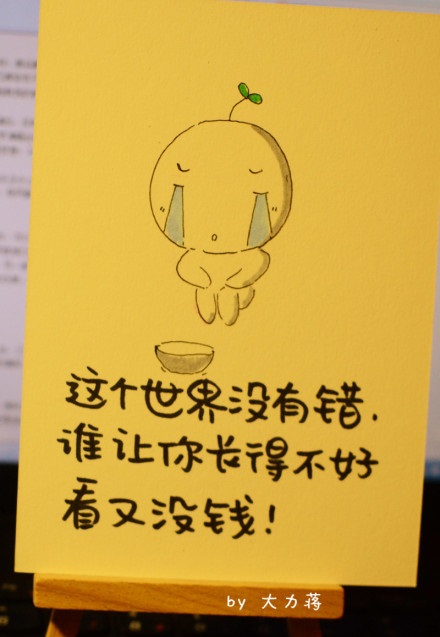 这个世界没有错.
谁让你长得不好
看又没钱!
by 大力蒋